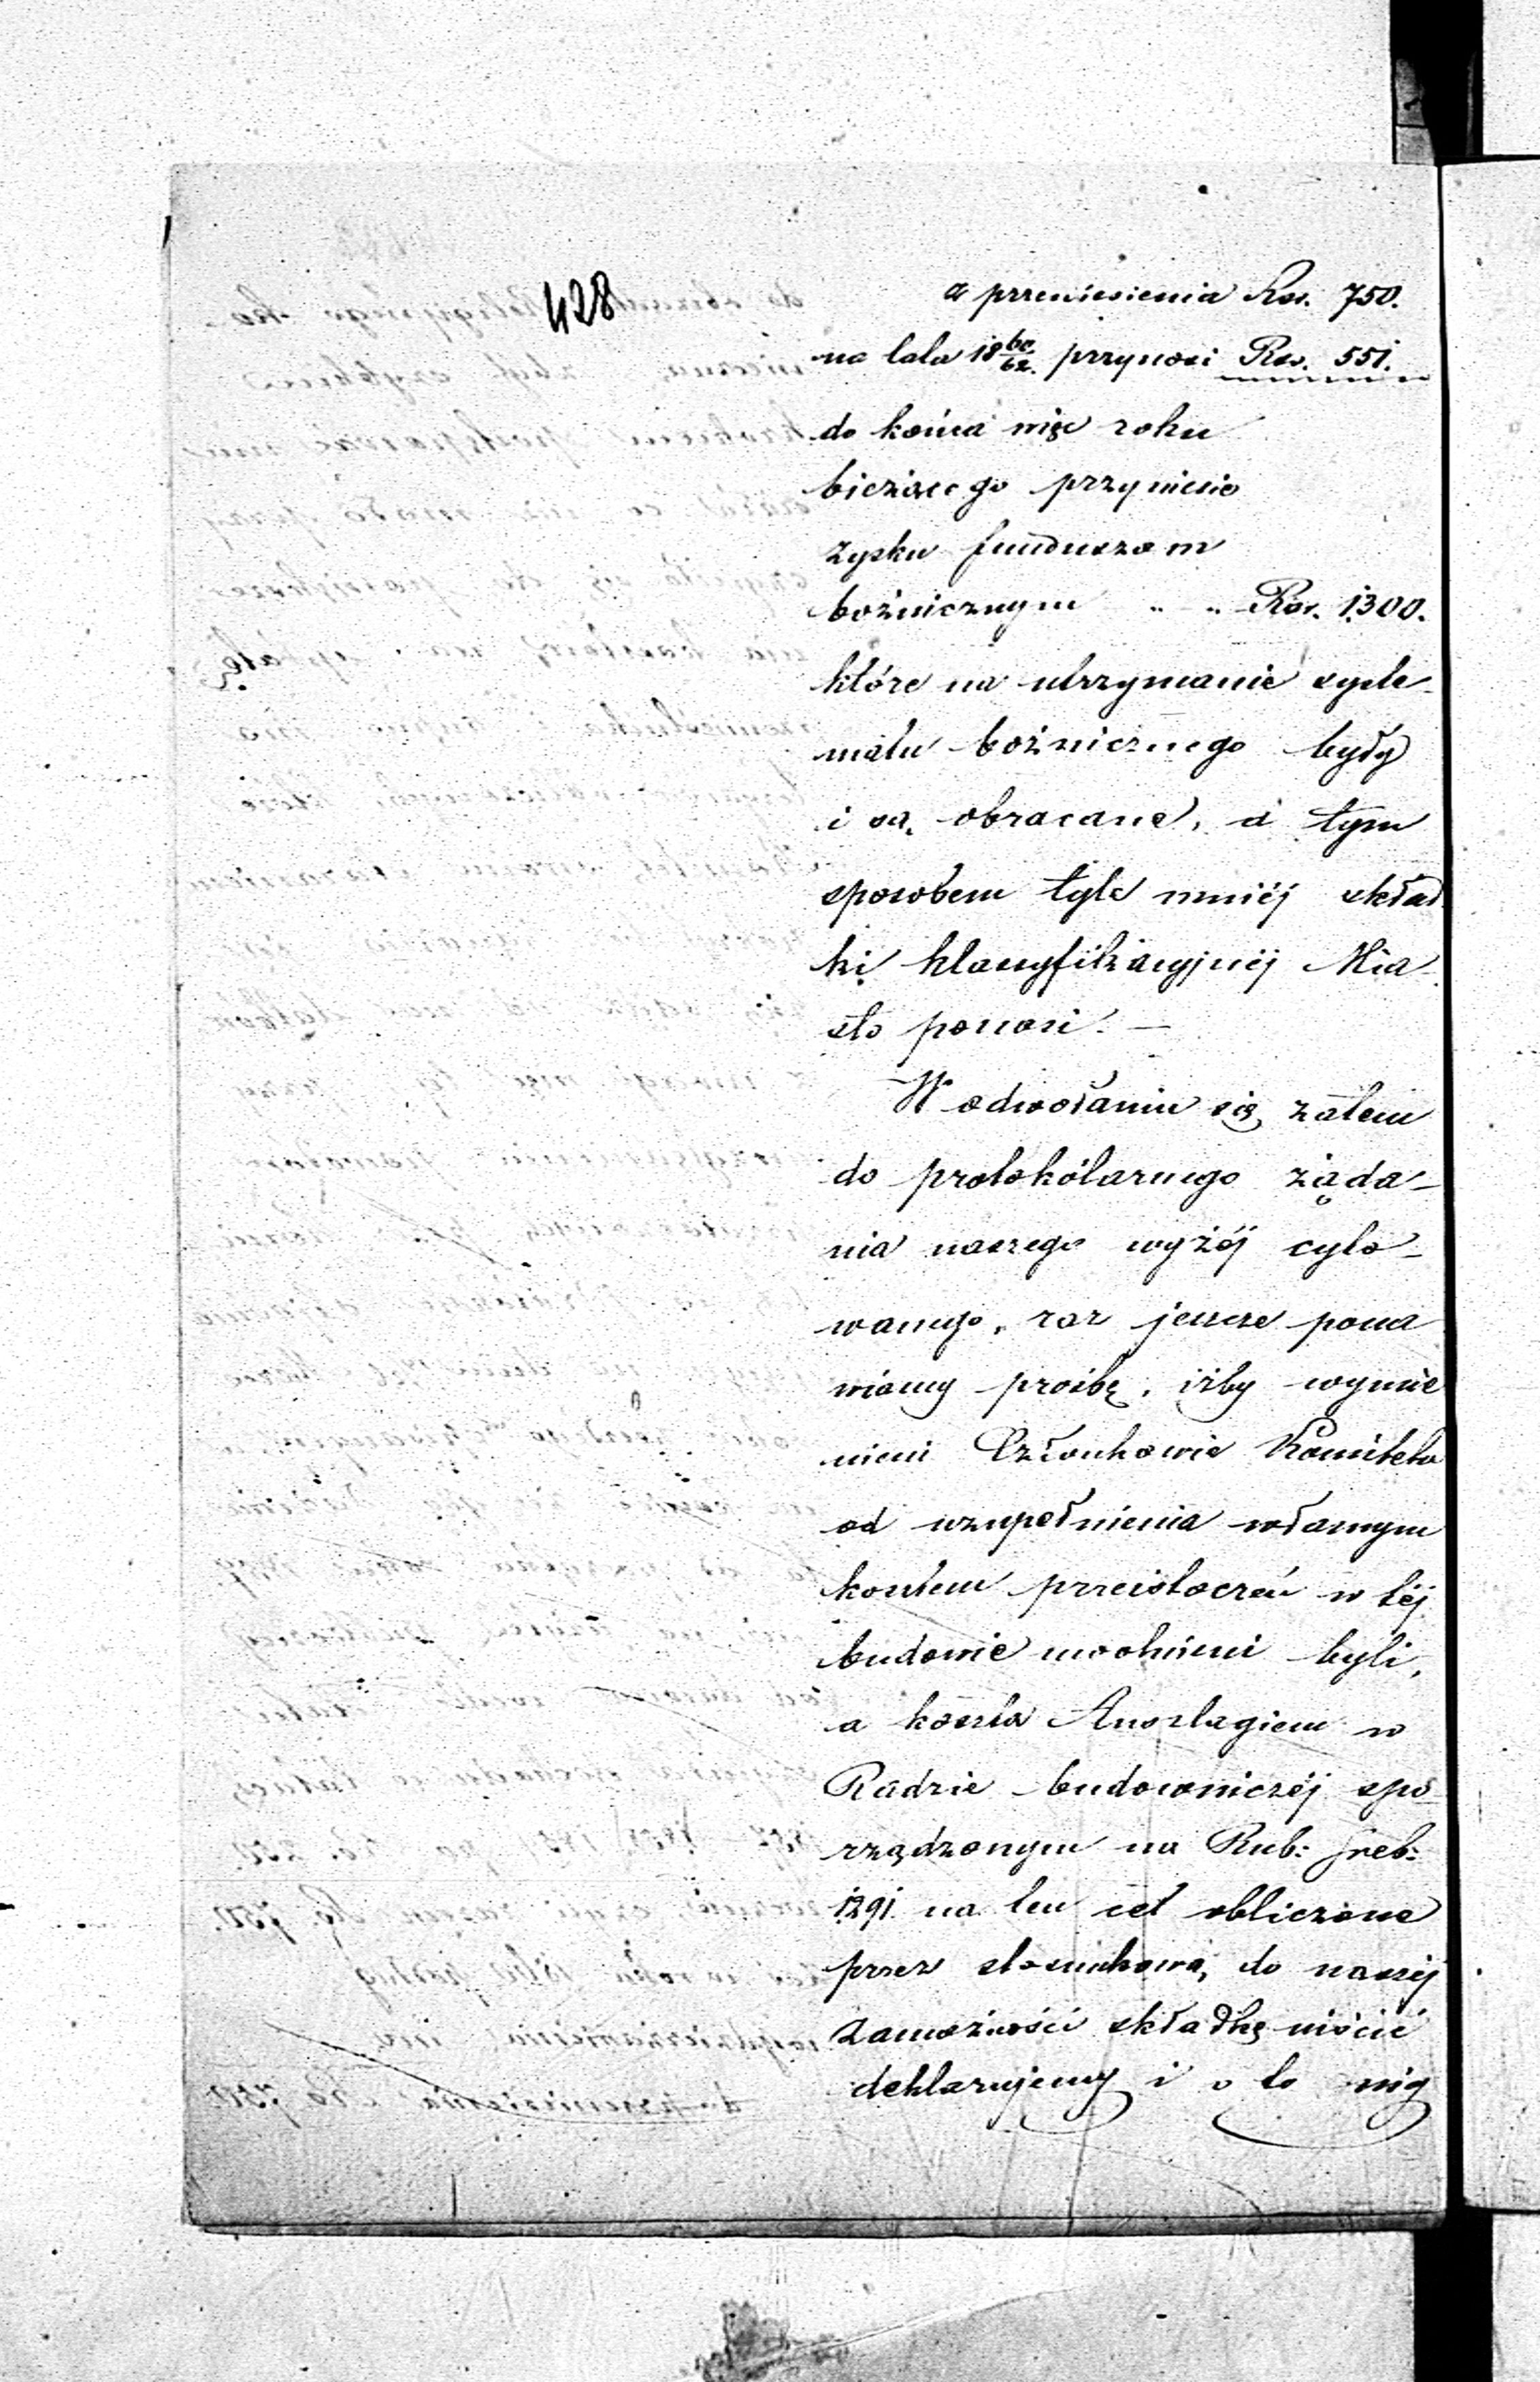 428
z przeniesienia Rsr. 750.
na lata 18 60/62. przynosi Rsr. 551.
do końca więc roku
bieżącego przyniesie
zysku funduszom
bożnicznym " " Rsr. 1300.
które na utrzymanie syste-
matu bożnicznego były
i są obracane, a tym
sposobem tyle mniéj skład
ki klassyfikacyjnéj Mia-
sto ponosi. —
W odwołaniu się zatem
do protokólarnego żąda-
nia naszego wyżéj cyto-
wanego, raz jeszcze pona
wiamy prośbę, iżby wymie
nieni Członkowie Komitetu
od uzupełnienia własnym
kosztem przeistoczeń w téj
budowie uwolnieni byli,
a koszta Anszlagiem w
Radzie budowniczéj spo
rządzonym na Rub: sreb:
1291 na ten cel obliczone
przez stosunkową do naszéj
zamożności składkę uiścić
deklarujemy i o to nig